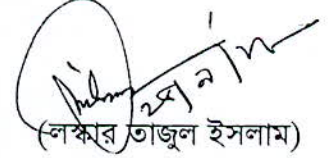 (লস্কার তাজুল ইসলাম)